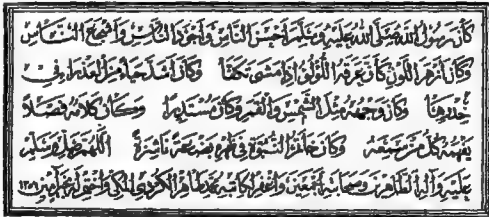 كان رسول الله صلى الله عليه وسلم أحسن الناس وأجود الناس وأشجع الناس
وكان أزهر اللون كأن عرقه اللؤلؤ إذا مشى تكفأ وكان أشد حياء من العذراء في
خدرها وكان وجهه مثل الشمس والقمر وكان مستديرا وكان كلامه فصلا
يفهمه كل من سمعه وكان خاتم النبوة في ظهره بضعة ناشزة اللهم صل وسلم
عليه وآله الطاهرين وصحابته أجمعين واغفر لكاتبه محمد طاهر الكردي المكي